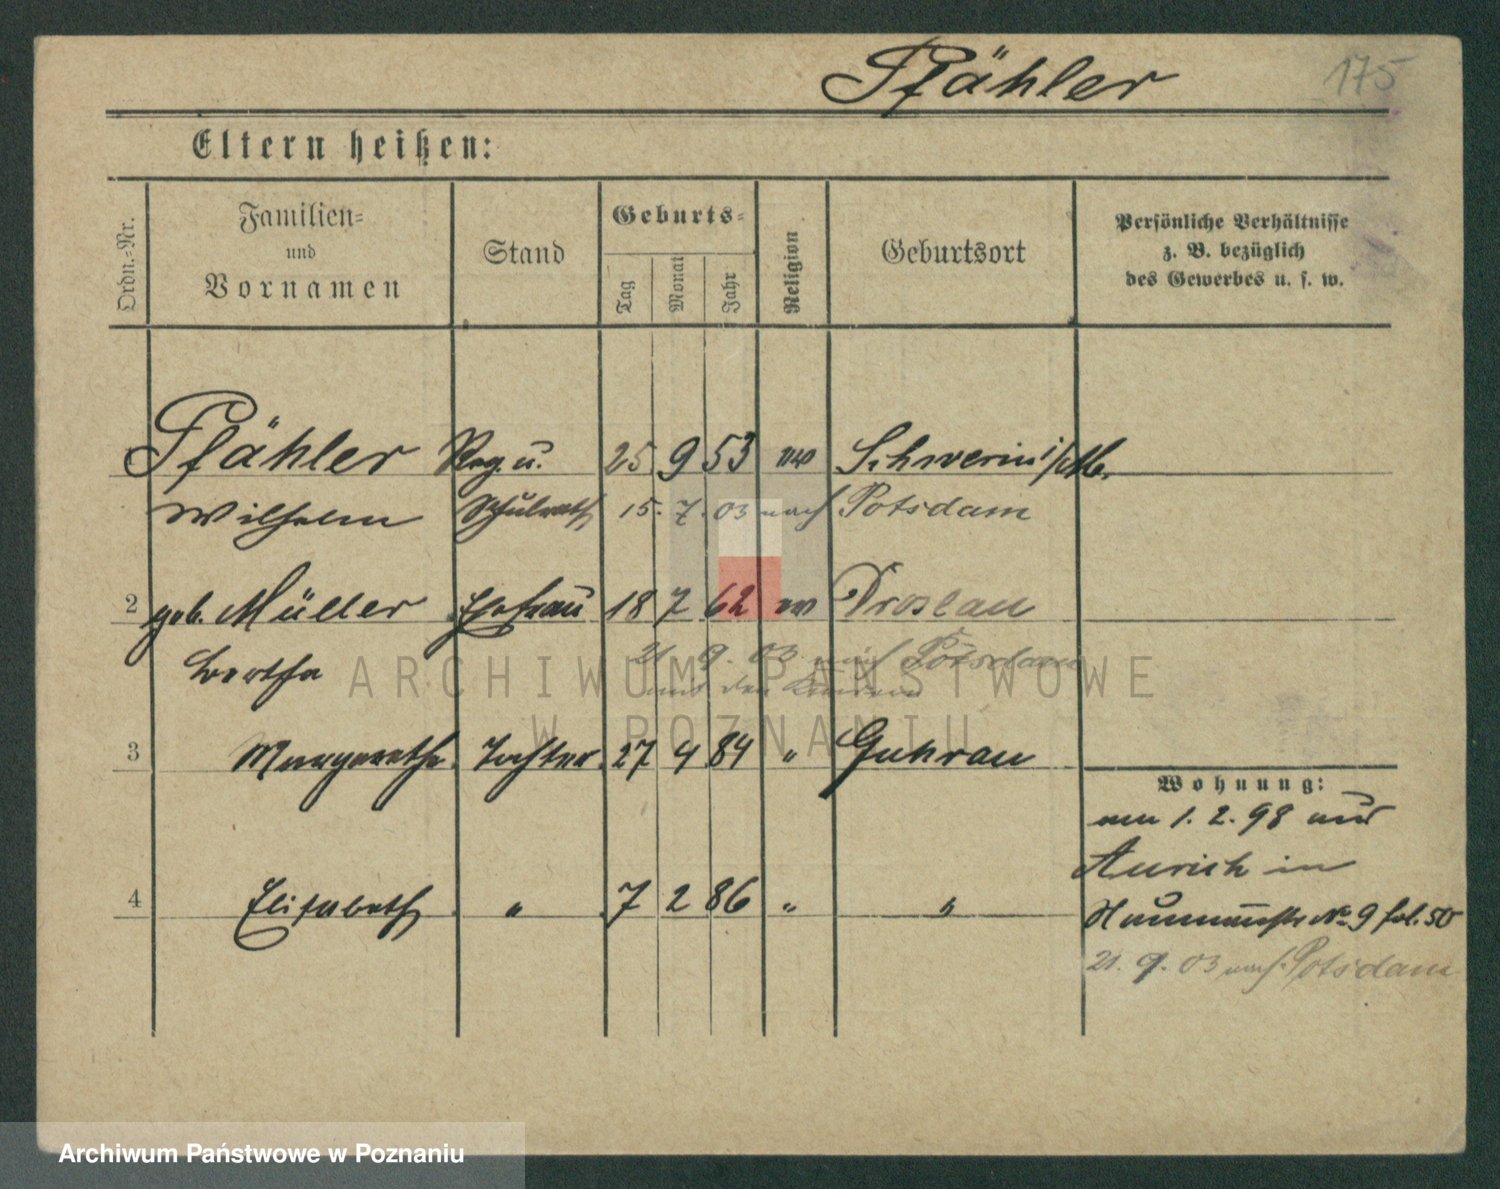 Pfähler 175
Eltern heißen:
Ordn.-Nr.
Familien-
und
Vornamen
Stand
Geburts-
Tag
Monat
Jahr
Religion
Geburtsort
Persönliche Verhältnisse
z. B. bezüglich
des Gewerbes u. s. w.
Pfähler Reg. u. 25 9 53 ev Schwerin i/Mb.
Wilhelm Schulrath 15. 7. 03 nach Potsdam
2 geb. Müller Ehefrau 18 7 62 ev Droslau
Bertha 21. 9. 03 nach Potsdam
mit den Kindern
3 Margarethe Tochter 27 4 84 " Guhrau
Wohnung:
am 1. 2. 98 aus
Aurich in
4 Elisabeth " 7 2 86 " "
No 9 fol. 50
21. 9. 03 nach Potsdam
ARCHIWUM PAŃSTWOWE
W POZNANIU
Archiwum Państwowe w Poznaniu